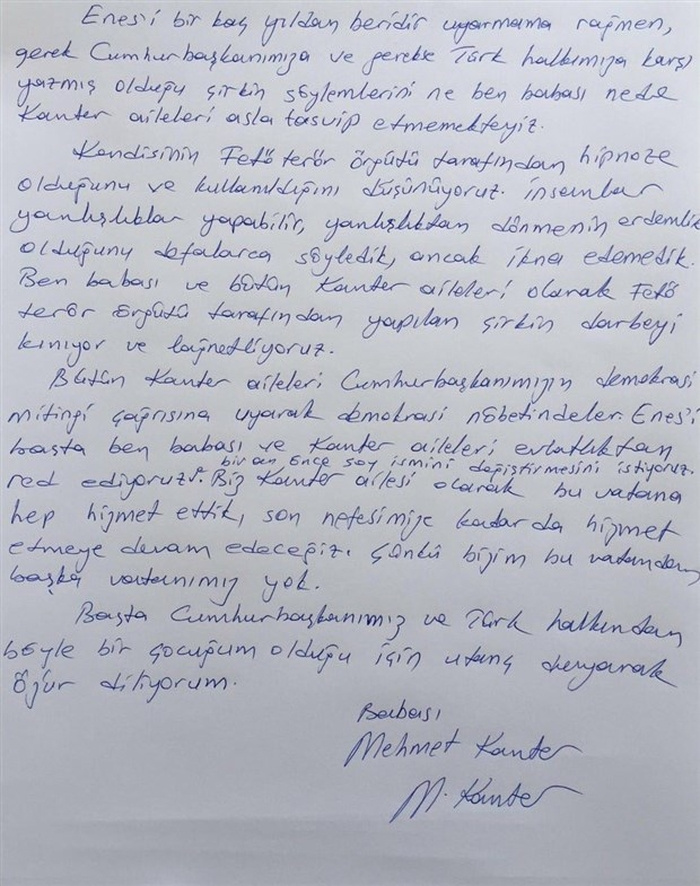 Enes'i bir kaç yıldan beridir uyarmama rağmen,
gerek Cumhurbaşkanımıza ve gerekse Türk halkımıza karşı
yazmış olduğu çirkin söylemlerini ne ben babası nede
Kanter aileleri asla tasvip etmemekteyiz.
Kendisinin Fetö terör örgütü tarafından hipnoze
olduğunu ve kullanıldığını düşünüyoruz. İnsanlar
yanlışlıklar yapabilir, yanlışlıktan dönmenin erdemlik
olduğunu defalarca söyledik, ancak ikna edemedik.
Ben babası ve bütün Kanter aileleri olarak Fetö
terör örgütü tarafından yapılan çirkin darbeyi
kınıyor ve lağnetliyoruz.
Bütün Kanter aileleri Cumhurbaşkanımızın demokrasi
mitingi çağrısına uyarak demokrasi nöbetindeler. Enes'i
başta ben babası ve Kanter aileleri evlatlıktan
bir an önce soy ismini değiştirmesini istiyoruz.
red ediyoruz. Biz Kanter ailesi olarak bu vatana
hep hizmet ettik, son nefesimize kadar da hizmet
etmeye devam edeceğiz. Çünkü bizim bu vatandan
başka vatanımız yok.
Başta Cumhurbaşkanımız ve Türk halkından
böyle bir çocuğum olduğu için utanç duyarak
özür diliyorum.
Babası
Mehmet Kanter
M. Kanter